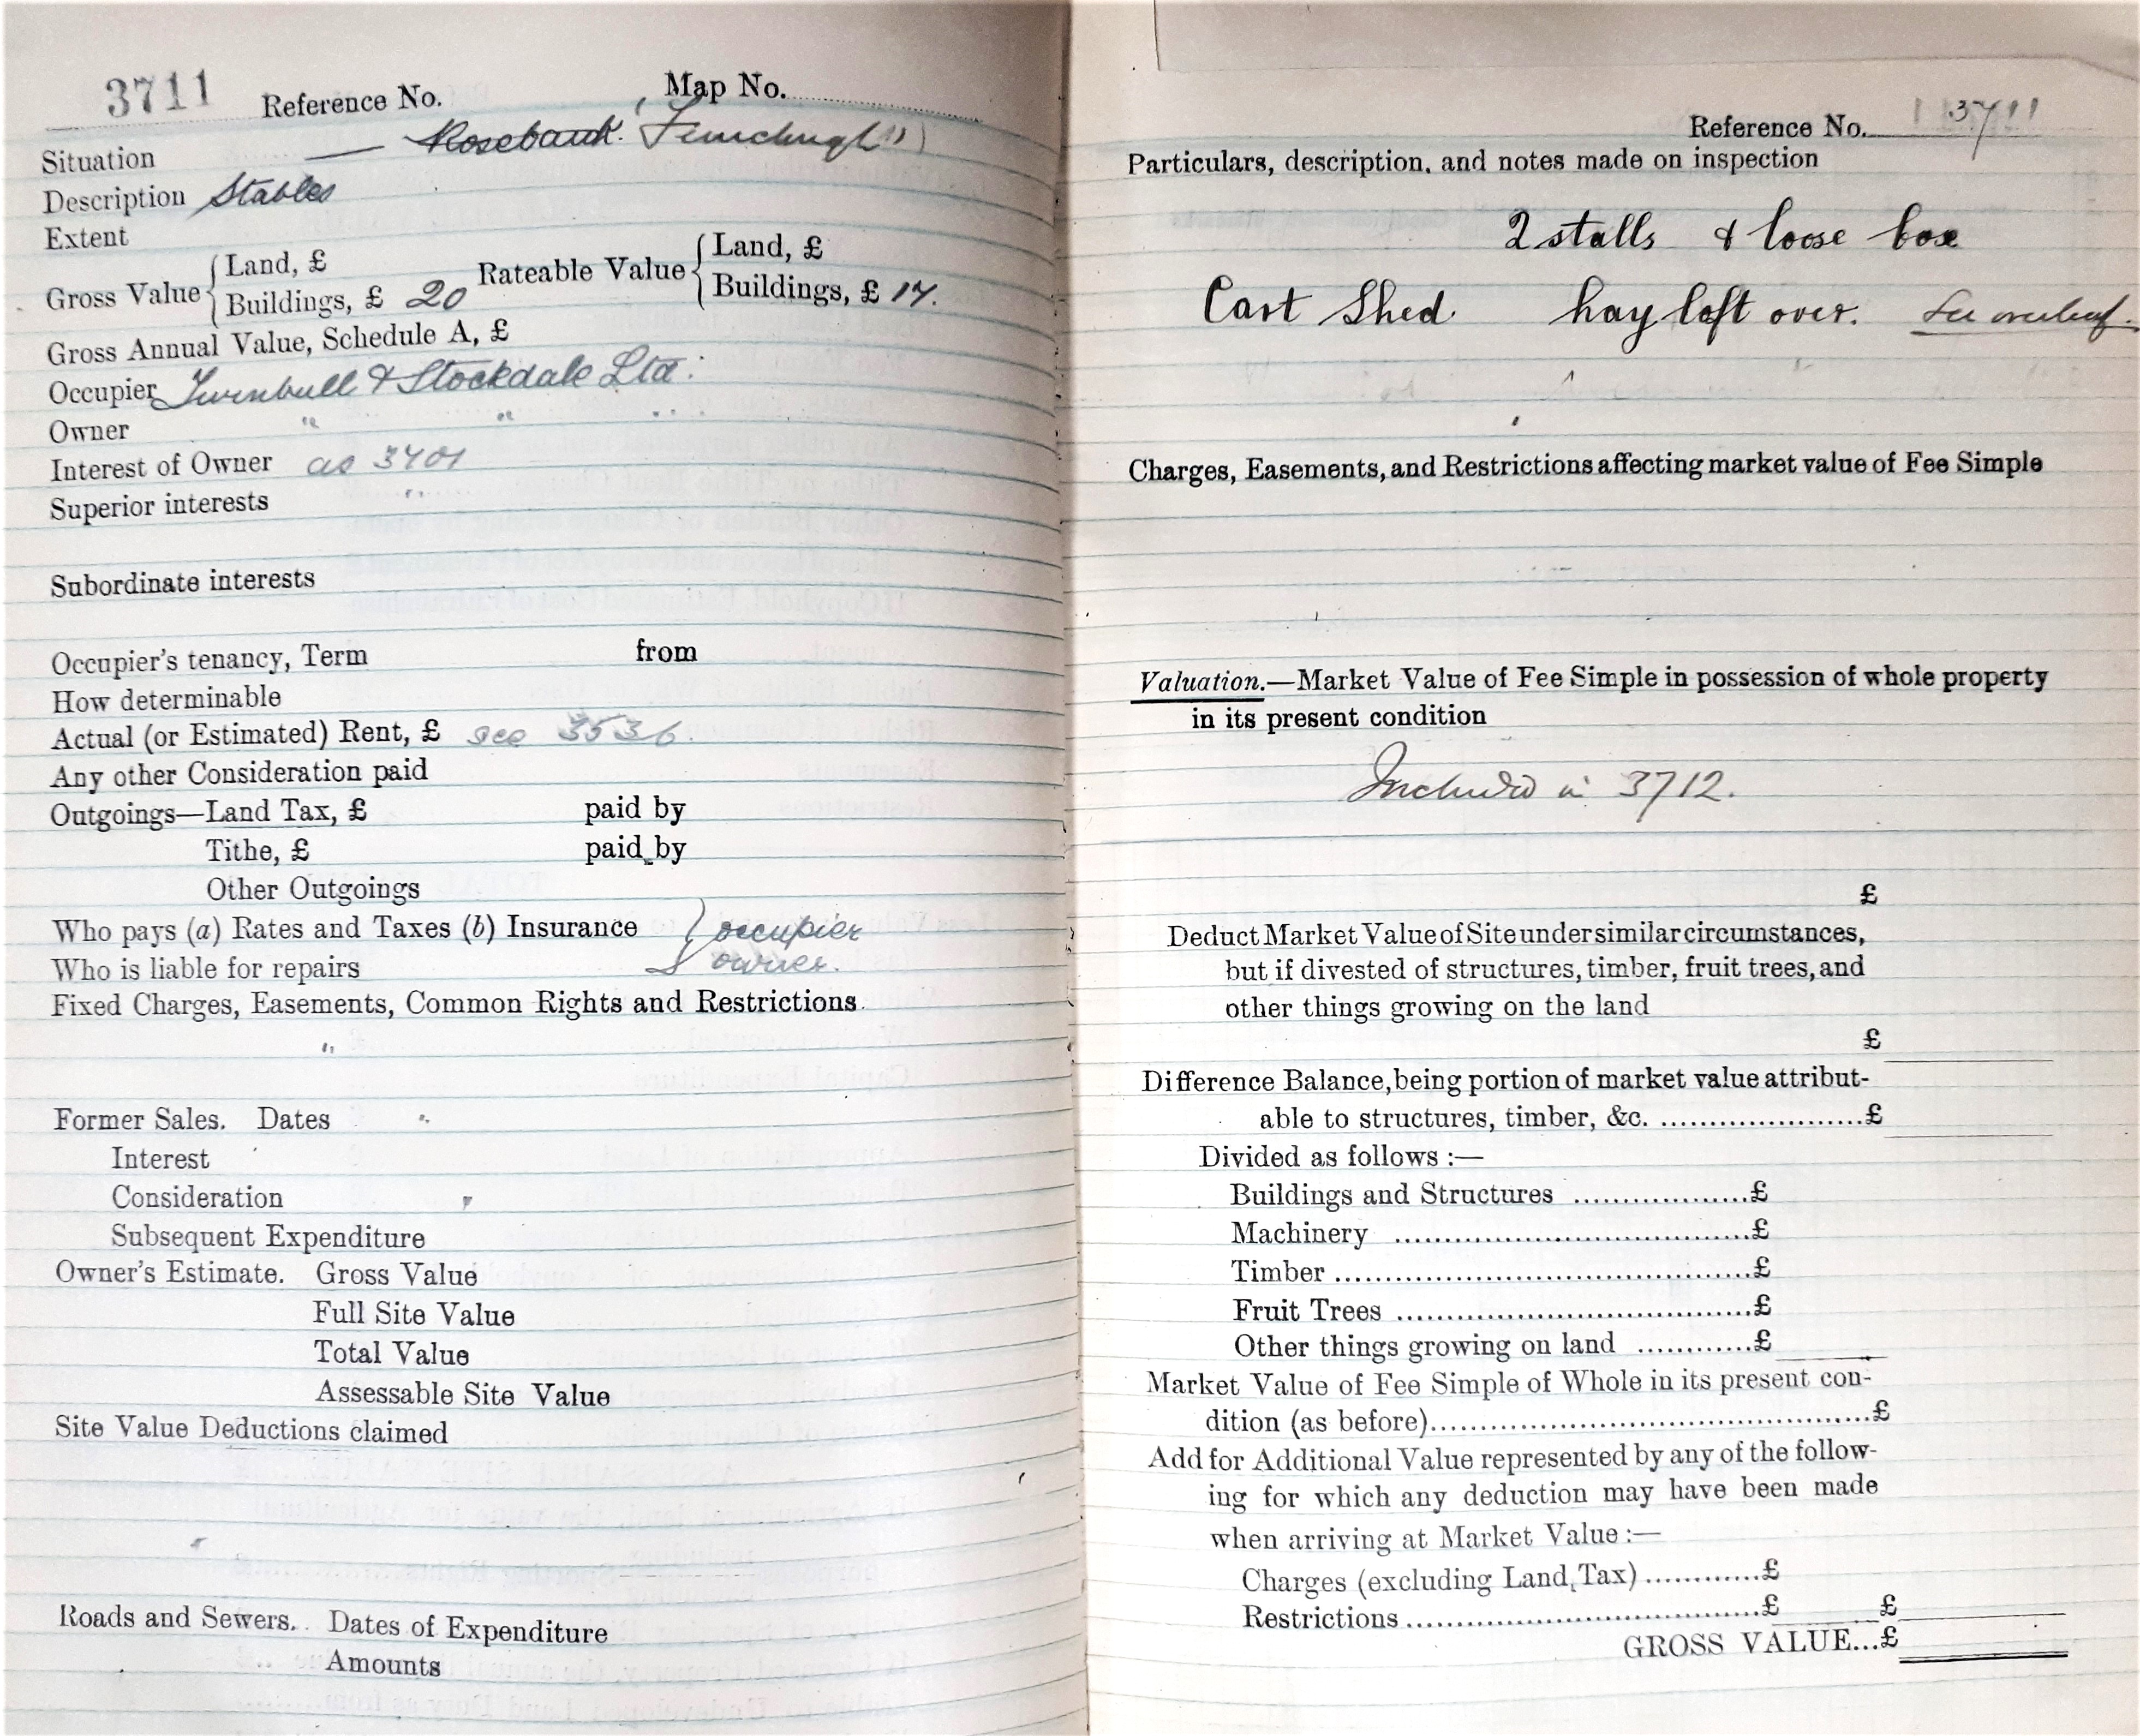 3711 Reference No. Map No.
Situation — Rosebank.
Description Stables
Extent
Gross Value { Land, £
Buildings, £ 20
Rateable Value { Land, £
Buildings, £ 17.
Gross Annual Value, Schedule A, £
Occupier Turnbull & Stockdale Ltd.
Owner " " "
Interest of Owner as 3401
Superior interests "
Subordinate interests
Occupier's tenancy, Term from
How determinable
Actual (or Estimated) Rent, £ see 3536.
Any other Consideration paid
Outgoings—Land Tax, £ paid by
Tithe, £ paid by
Other Outgoings
Who pays (a) Rates and Taxes (b) Insurance } occupier
Who is liable for repairs owner.
Fixed Charges, Easements, Common Rights and Restrictions.
Former Sales. Dates
Interest
Consideration
Subsequent Expenditure
Owner's Estimate. Gross Value
Full Site Value
Total Value
Assessable Site Value
Site Value Deductions claimed
Roads and Sewers. Dates of Expenditure
Amounts
Reference No. 3711
Particulars, description, and notes made on inspection
2 stalls & loose box
Cart Shed. hay loft over. See overleaf.
Charges, Easements, and Restrictions affecting market value of Fee Simple
Valuation.—Market Value of Fee Simple in possession of whole property
in its present condition
Included in 3712.
£
Deduct Market Value of Site under similar circumstances,
but if divested of structures, timber, fruit trees, and
other things growing on the land
£
Difference Balance, being portion of market value attribut-
able to structures, timber, &c. ......................£
Divided as follows :—
Buildings and Structures ..................£
Machinery ....................................£
Timber ..........................................£
Fruit Trees ....................................£
Other things growing on land ............£
Market Value of Fee Simple of Whole in its present con-
dition (as before).............................................£
Add for Additional Value represented by any of the follow-
ing for which any deduction may have been made
when arriving at Market Value :—
Charges (excluding Land Tax) ............£
Restrictions ....................................£ £
GROSS VALUE...£